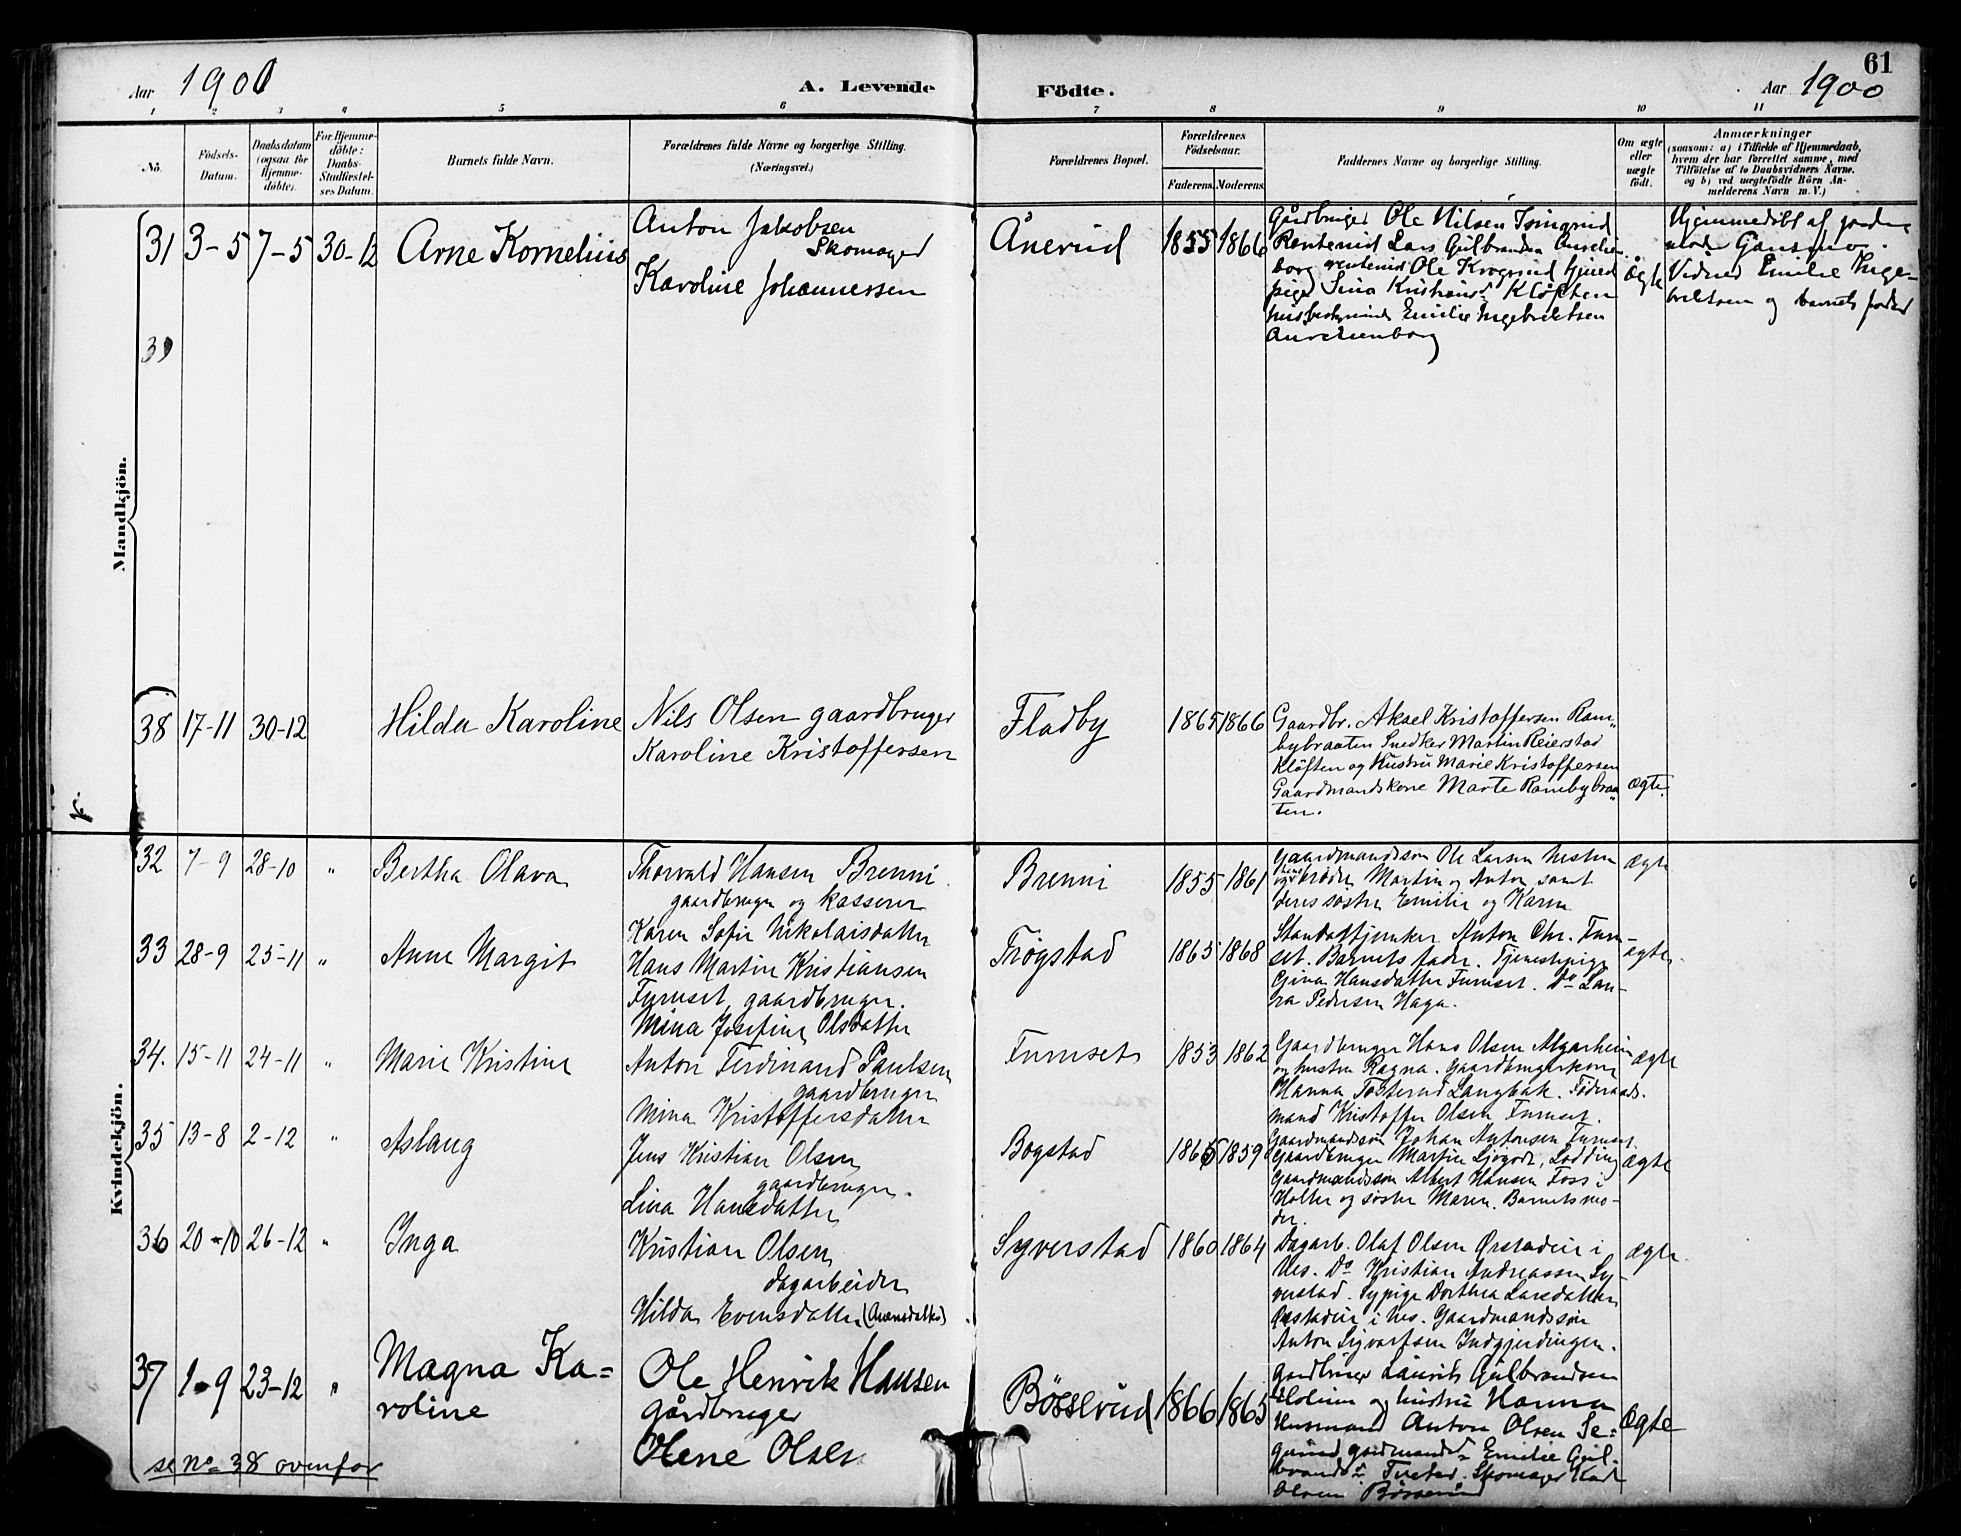 61
Aar 1900
A. Levende Födte.
Aar 1900
1 2 3 4 5 6 7 8 9 10 11
No.
Födsels-Datum.
Daabsdatum (ogsaa for Hjemme-döbte).
For Hjemme-döbte: Daabs-Stadfæstel-ses Datum.
Barnets fulde Navn.
Forældrenes fulde Navne og borgerlige Stilling.
(Næringsvei.)
Forældrenes Bopæl.
Forældrenes Födselsaar.
Faderens. Moderens.
Faddernes Navne og borgerlige Stilling.
Om ægte eller uægte födt.
Anmærkninger
(saasom: a) i Tilfælde af Hjemmedaab,
hvem der har forrettet samme, med
Tilföielse af to Daabsvidners Navne.
og b) ved uægtefödte Börn An-
melderens Navn m. V.)
Mandkjön.
31 3-5 7-5 30-12 Arne Kornelius
Anton Jakobsen
Skomager
Karoline Johannessen
Ånerud 1855 1866
Gårdbruger Ole Nilsen
Lars Gulbrandsen
Ole Krogsrud
Kløften
Emilie Ingebriktsen
Ægte
Hjemmedøbt af
Gansmo.
Vidner Emilie Inge-
briktsen og barnets fader
39
38 17-11 30-12 Hilda Karoline
Nils Olsen gaardbruger
Karoline Kristoffersen
Fladby 1865 1866
Gaardbr. Aksel Kristoffersen Ram-
bybraaten Snedker Martin Reierstad
Kløften og Hustru Marie Kristoffersen
Gaardmandskone Marte Rambybraa-
ten.
ægte.
Kvindekjön.
32 7-9 28-10 " Bertha Olava
Thorvald Hansen Brenni
gaardbruger og kasserer
Karen Sofie Nikolaisdatter
Brenni 1855 1861
Gaardmandssøn Ole Larsen
brødre Martin og Anton samt
deres søster Emilie og Karen
ægte
33 28-9 25-11 " Anne Margit
Hans Martin Kristiansen
Furuset, gaardbruger.
Mina Josefine Olsdatter
Trøgstad 1865 1868
Anton Chr. Furu-
set. Barnets fader. Tjenestepige
Gina Hansdatter Furuset. Do Lau-
ra Pedersen Haga.
ægte.
34. 15-11 24-11 " Marie Kristine
Anton Ferdinand Paulsen
gaardbruger
Mina Kristoffersdatter
Furuset 1853 1862
Gaardbruger Hans Olsen Algarheim
og hustru Ragna. Gaardbrugerkone
Hanna Tosterud Langbak. Føderaads-
mand Kristoffer Olsen Furuset.
ægte
35 13-8 2-12 " Aslaug
Jens Kristian Olsen
gaardbruger.
Lina Hansdatter
Bogstad 1865 1859
Gaardmandssøn Johan Antonsen Furuset.
Gaardbruger Martin
Gaardmandssøn Albert Hansen Foss i
Holter og søster Maren. Barnets mo-
der.
ægte
36 20-10 26-12 " Inga
Kristian Olsen
dagarbeider
Hilda Evensdatter
Syverstad 1860 1864
Dagarb. Olaf Olsen Ørstadeie i
Nes. Do Kristian Andreassen Sy-
verstad. Sypige Dorthea Larsdatter
Ørstadeie i Nes. Gaardmandssøn
Anton Sigvartsen Indgjerdingen.
ægte
37 1-9 23-12 " Magna Ka-
roline
Ole Henrik Hansen
gårdbruger
Olene Olsen
Bösserud 1866 1865
gardbruger Laurits Gulbrandsen
Holum og hustru Hanna
Husmand Anton Olsen Se-
Emilie Gul-
Skomager Karl
Olsen Bösserud
Ægte
se no 38 ovenfor